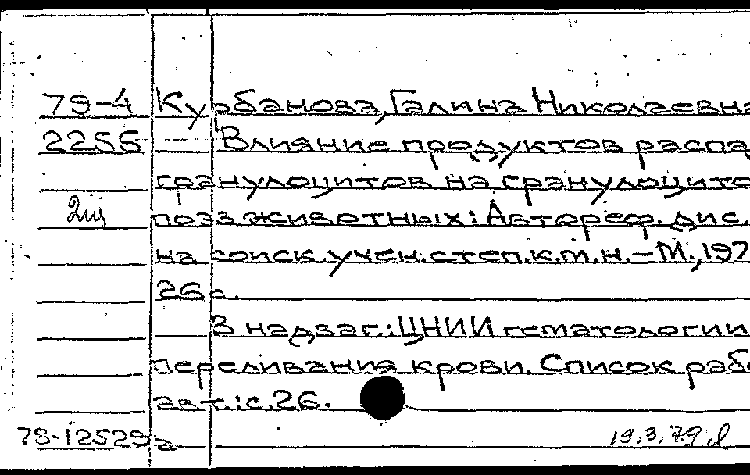 79-4 Курбанова, Галина Николаевна
2256 Влияние продуктов распа
гранулоцитов на гранулоцито
2щ поэз животных: Автореф. дис.
на соиск. учен. степ. к.м.н. – М., 197
26 с.
В надзаг.: ЦНИИ гематологии
переливания крови. Список раб
авт.: с. 26.
79-12529 19.3.79